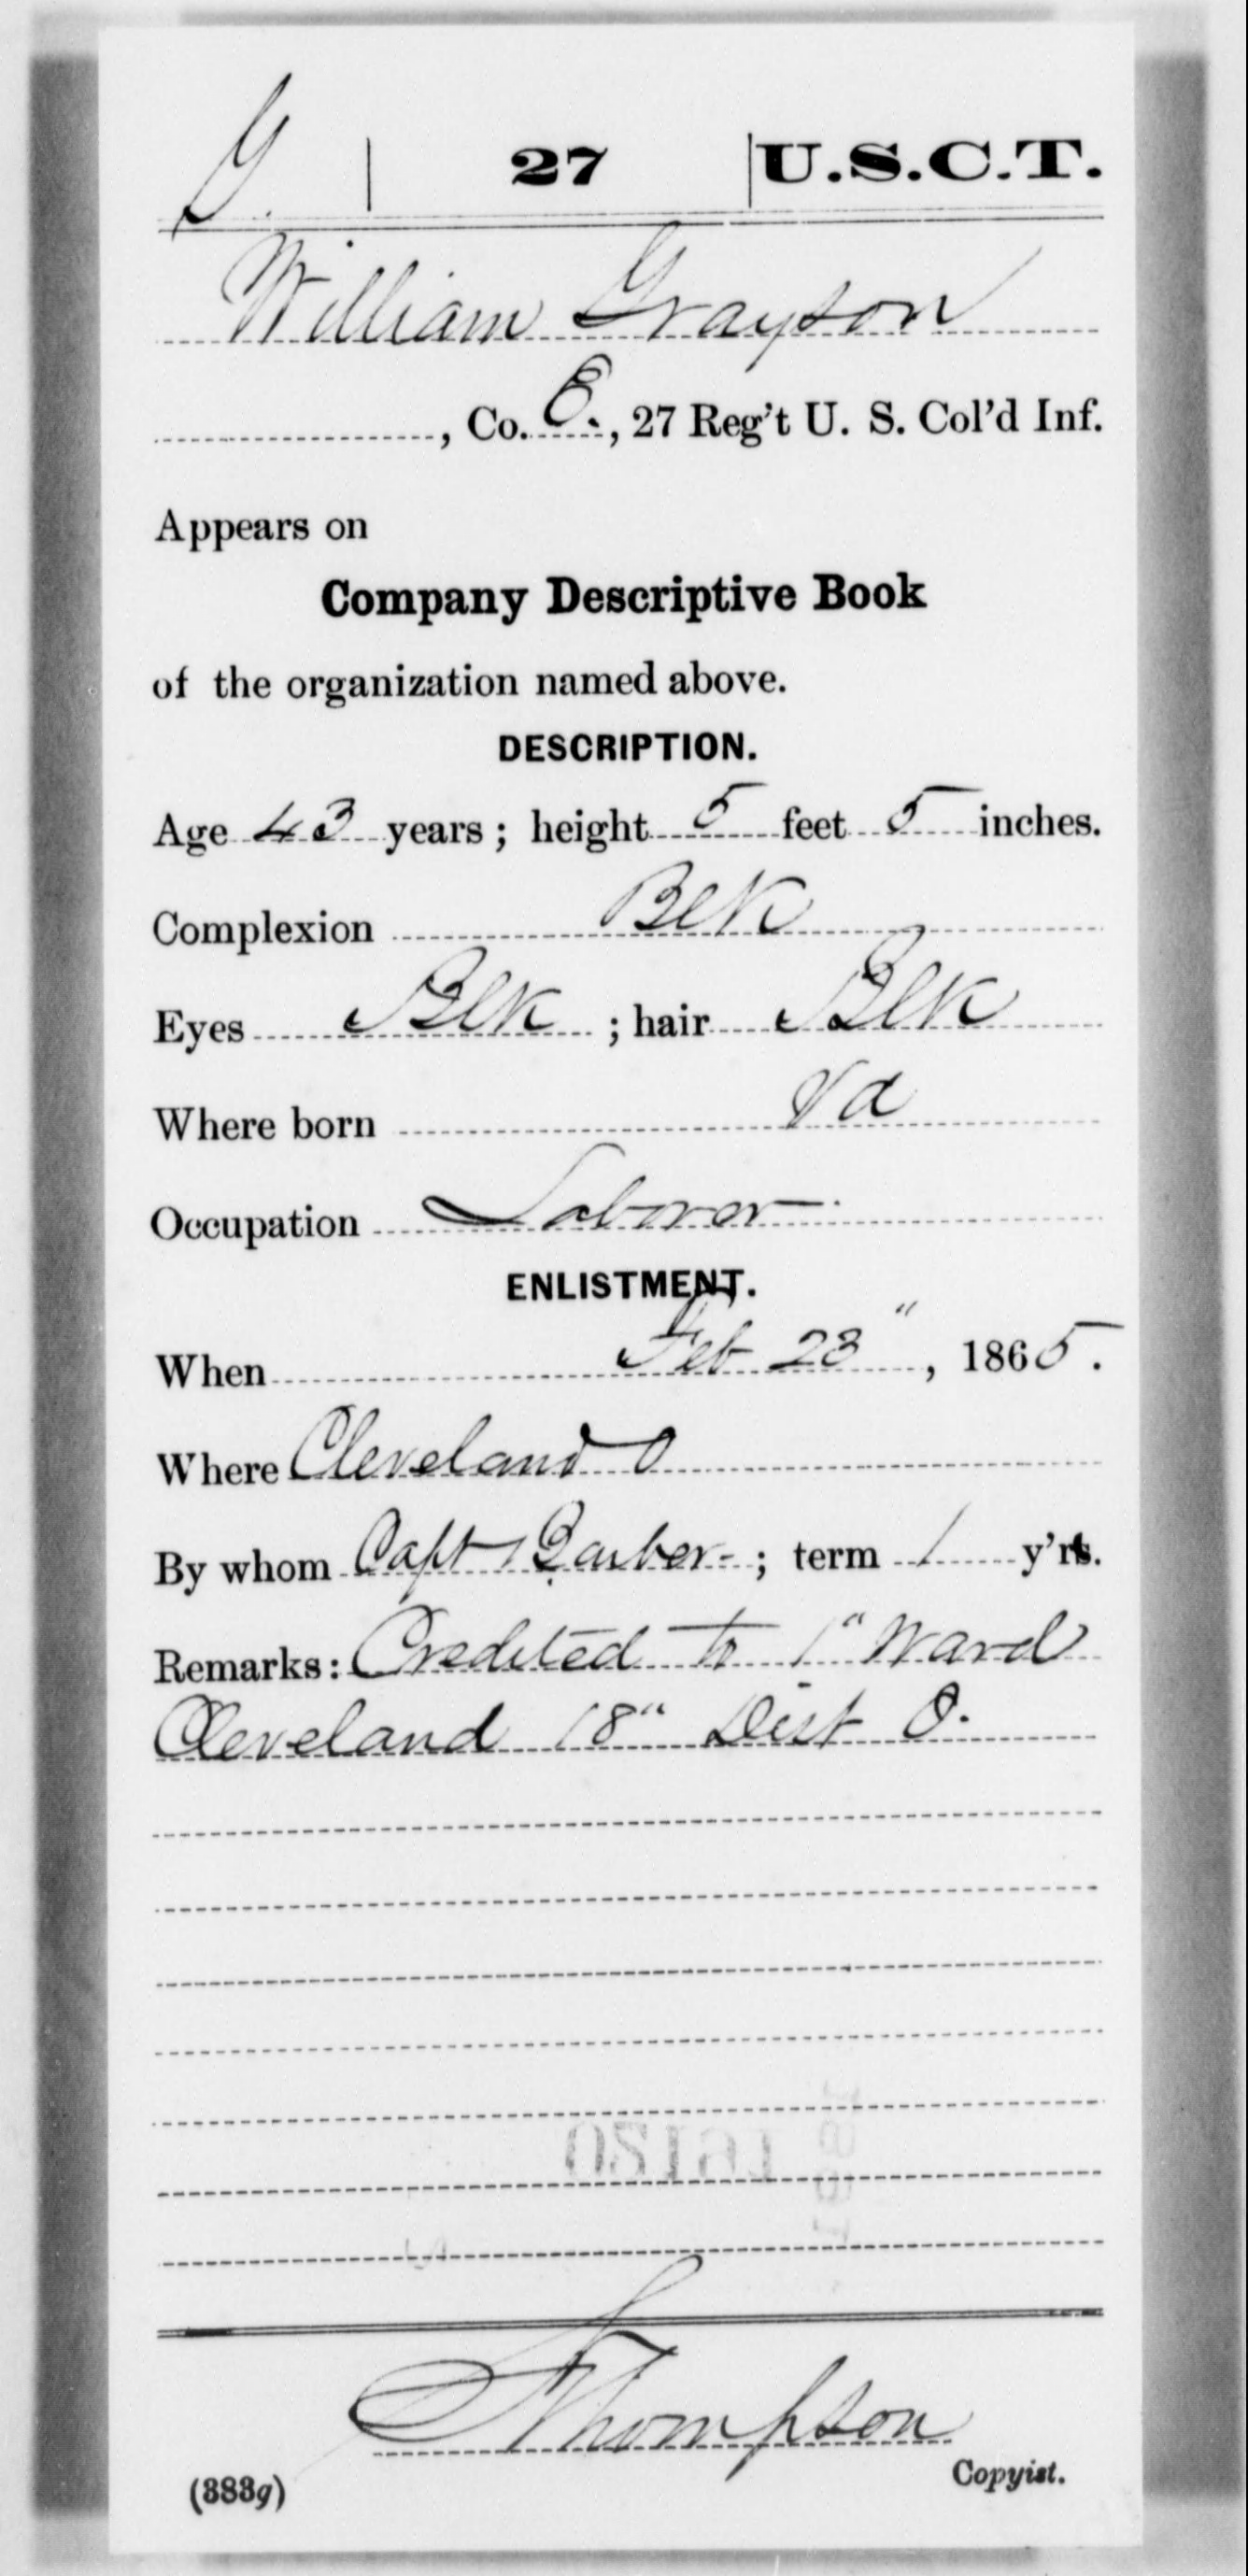 G. | 27 | U.S.C.T.
William Grayson
, Co. E., 27 Reg't U. S. Col'd Inf.
Appears on
Company Descriptive Book
of the organization named above.
DESCRIPTION.
Age 43 years; height 5 feet 5 inches.
Complexion Blk
Eyes Blk; hair Blk
Where born Va
Occupation Laborer
ENLISTMENT.
When Feb 23", 1865.
Where Cleveland O
By whom Capt Barber; term 1 y'rs.
Remarks: Credited to 1" Ward
Cleveland 18" Dist O.
Thompson
Copyist.
(383g)